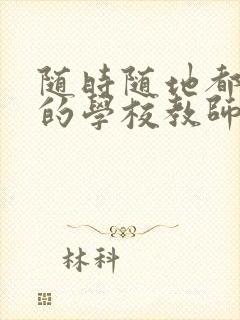 随時随地都
的學校教師
林科